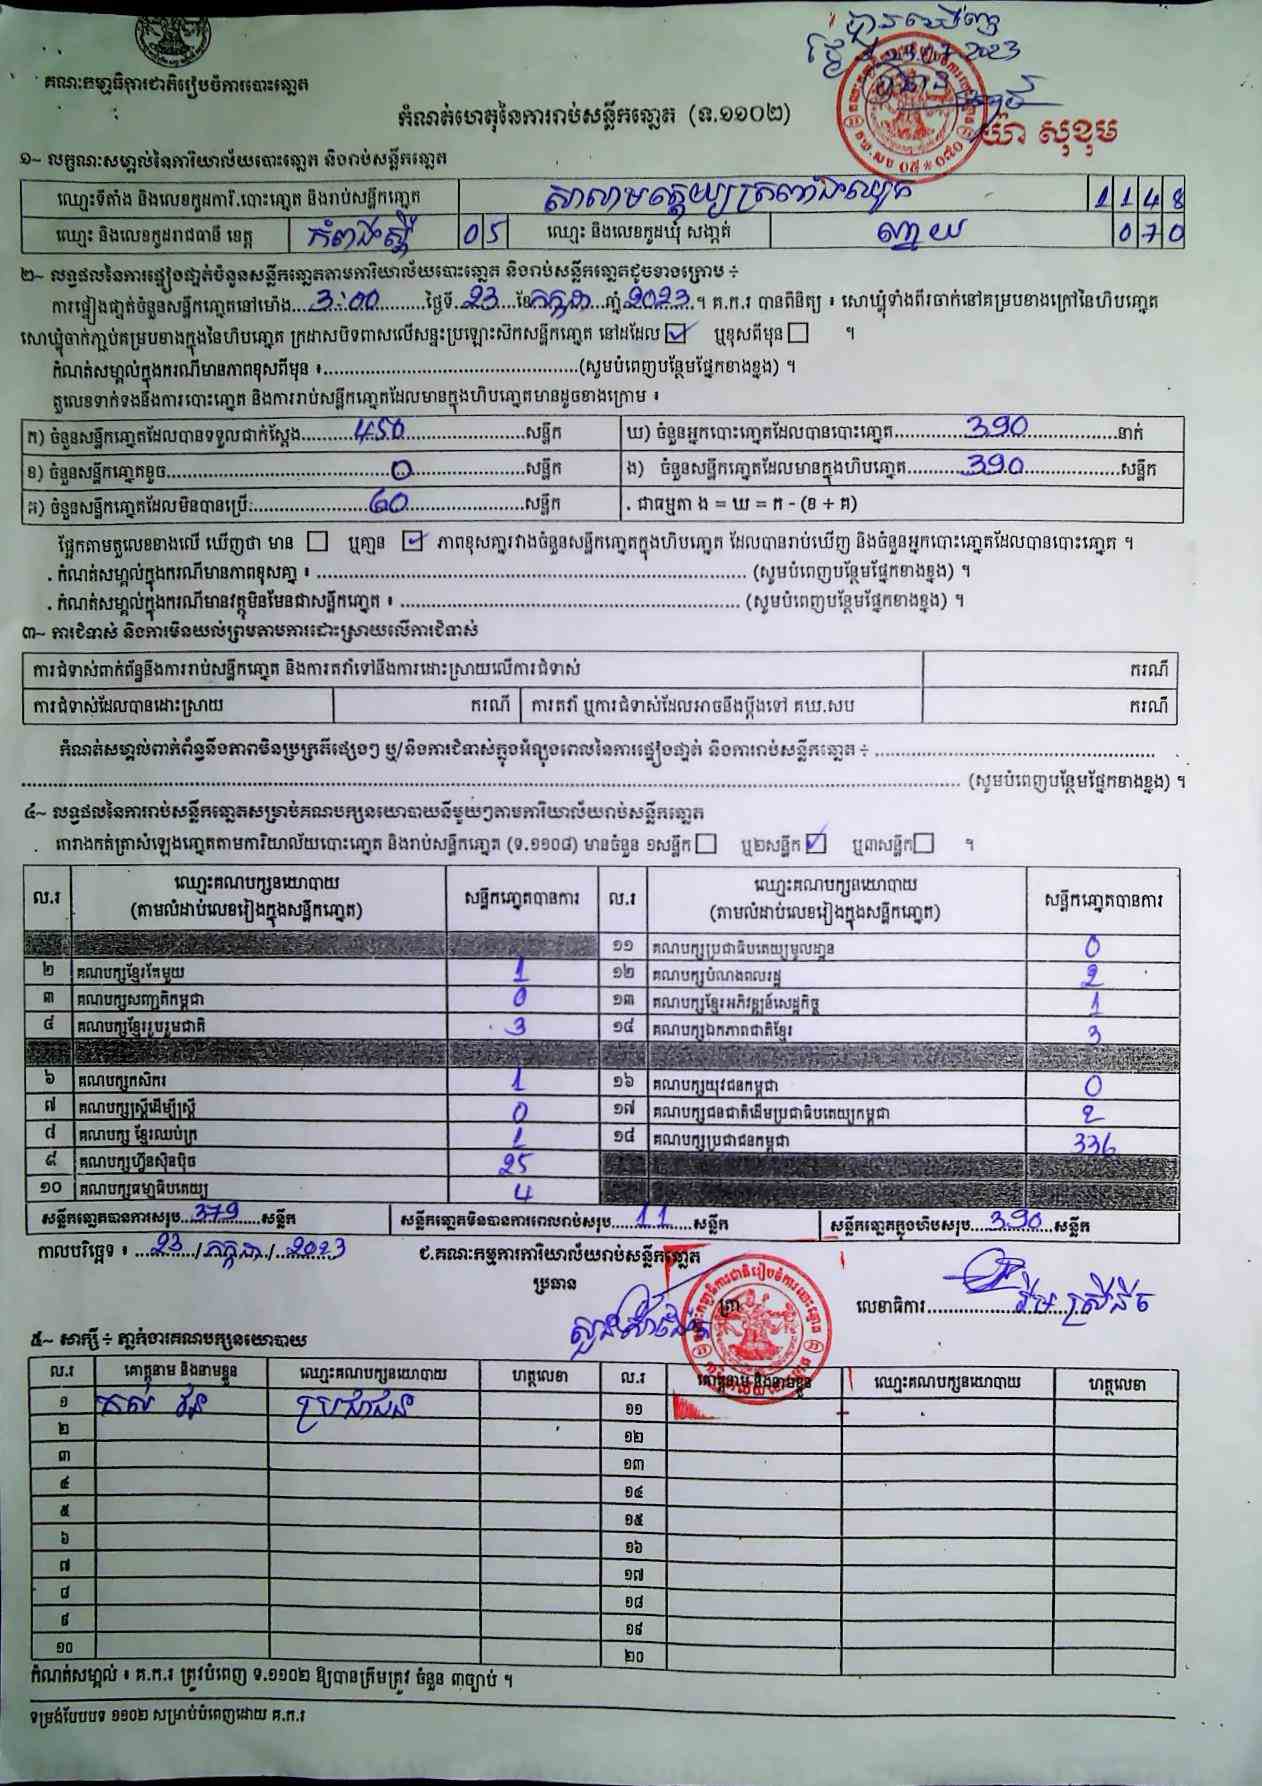 បានឃើញ
ថ្ងៃ 23.07.2023
យ៉ា សុខុម
គណៈកម្មាធិការជាតិរៀបចំការបោះឆ្នោត
កំណត់ហេតុនៃការរាប់សន្លឹកឆ្នោត (ទ.១១០២)
១~ លក្ខណៈសម្គាល់នៃការិយាល័យបោះឆ្នោត និងរាប់សន្លឹកឆ្នោត
ឈ្មោះទីតាំង និងលេខកូដការិ.បោះឆ្នោត និងរាប់សន្លឹកឆ្នោត សាលាមត្តេយ្យត្រពាំងឈូក 1148
ឈ្មោះ និងលេខកូដរាជធានី ខេត្ត កំពង់ស្ពឺ 05 ឈ្មោះ និងលេខកូដឃុំ សង្កាត់ 070
២~ លទ្ធផលនៃការផ្ទៀងផ្ទាត់ចំនួនសន្លឹកឆ្នោតតាមការិយាល័យបោះឆ្នោត និងរាប់សន្លឹកឆ្នោតដូចខាងក្រោម ÷
ការផ្ទៀងផ្ទាត់ចំនួនសន្លឹកឆ្នោតនៅម៉ោង 3:00 ថ្ងៃទី 23 ខែ កក្កដា ឆ្នាំ 2023 ។ គ.ក.រ បានពិនិត្យ ៖ សោឃ្លុំទាំងពីរចាក់នៅគម្របខាងក្រៅនៃហិបឆ្នោត
សោឃ្លុំចាក់ភ្ជាប់គម្របខាងក្នុងនៃហិបឆ្នោត ក្រដាសបិទពាសលើសន្ទះប្រឡោះសិកសន្លឹកឆ្នោត នៅដដែល ☑ ឬខុសពីមុន ☐ ។
កំណត់សម្គាល់ក្នុងករណីមានភាពខុសពីមុន ៖ (សូមបំពេញបន្ថែមផ្នែកខាងខ្នង) ។
តួលេខទាក់ទងនឹងការបោះឆ្នោត និងការរាប់សន្លឹកឆ្នោតដែលមានក្នុងហិបឆ្នោតមានដូចខាងក្រោម ៖
ក) ចំនួនសន្លឹកឆ្នោតដែលបានទទួលជាក់ស្តែង 450 សន្លឹក ឃ) ចំនួនអ្នកបោះឆ្នោតដែលបានបោះឆ្នោត 390 នាក់
ខ) ចំនួនសន្លឹកឆ្នោតខូច 0 សន្លឹក ង) ចំនួនសន្លឹកឆ្នោតដែលមានក្នុងហិបឆ្នោត 390 សន្លឹក
គ) ចំនួនសន្លឹកឆ្នោតដែលមិនបានប្រើ 60 សន្លឹក . ជាធម្មតា ង = ឃ = ក - (ខ + គ)
ផ្អែកតាមតួលេខខាងលើ ឃើញថា មាន ☐ ឬគ្មាន ☑ ភាពខុសគ្នារវាងចំនួនសន្លឹកឆ្នោតក្នុងហិបឆ្នោត ដែលបានរាប់ឃើញ និងចំនួនអ្នកបោះឆ្នោតដែលបានបោះឆ្នោត ។
. កំណត់សម្គាល់ក្នុងករណីមានភាពខុសគ្នា ៖ (សូមបំពេញបន្ថែមផ្នែកខាងខ្នង) ។
. កំណត់សម្គាល់ក្នុងករណីមានវត្ថុមិនមែនជាសន្លឹកឆ្នោត ៖ (សូមបំពេញបន្ថែមផ្នែកខាងខ្នង) ។
៣~ ការជំទាស់ និងការមិនយល់ព្រមតាមការដោះស្រាយលើការជំទាស់
ការជំទាស់ពាក់ព័ន្ធនឹងការរាប់សន្លឹកឆ្នោត និងការតវ៉ាទៅនឹងការដោះស្រាយលើការជំទាស់ ករណី
ការជំទាស់ដែលបានដោះស្រាយ ករណី ការតវ៉ា ឬការជំទាស់ដែលអាចនឹងប្តឹងទៅ គឃ.សប ករណី
កំណត់សម្គាល់ពាក់ព័ន្ធនឹងភាពមិនប្រក្រតីផ្សេងៗ ឬ/និងការជំទាស់ក្នុងអំឡុងពេលនៃការផ្ទៀងផ្ទាត់ និងការរាប់សន្លឹកឆ្នោត ÷
(សូមបំពេញបន្ថែមផ្នែកខាងខ្នង) ។
៤~ លទ្ធផលនៃការរាប់សន្លឹកឆ្នោតសម្រាប់គណបក្សនយោបាយនីមួយៗតាមការិយាល័យរាប់សន្លឹកឆ្នោត
តារាងកត់ត្រាសំឡេងឆ្នោតតាមការិយាល័យបោះឆ្នោត និងរាប់សន្លឹកឆ្នោត (ទ.១១០៨) មានចំនួន ១សន្លឹក ☐ ឬ២សន្លឹក ☑ ឬ៣សន្លឹក ☐ ។
ល.រ ឈ្មោះគណបក្សនយោបាយ (តាមលំដាប់លេខរៀងក្នុងសន្លឹកឆ្នោត) សន្លឹកឆ្នោតបានការ ល.រ ឈ្មោះគណបក្សនយោបាយ (តាមលំដាប់លេខរៀងក្នុងសន្លឹកឆ្នោត) សន្លឹកឆ្នោតបានការ
១១ គណបក្សប្រជាធិបតេយ្យមូលដ្ឋាន 0
២ គណបក្សខ្មែរតែមួយ 1 ១២ គណបក្សបំណងពលរដ្ឋ 2
៣ គណបក្សសញ្ជាតិកម្ពុជា 0 ១៣ គណបក្សខ្មែរអភិវឌ្ឍន៍សេដ្ឋកិច្ច 1
៤ គណបក្សខ្មែររួបរួមជាតិ 3 ១៤ គណបក្សឯកភាពជាតិខ្មែរ 3
៦ គណបក្សកសិករ 1 ១៦ គណបក្សយុវជនកម្ពុជា 0
៧ គណបក្សស្ត្រីដើម្បីស្ត្រី 0 ១៧ គណបក្សជនជាតិដើមប្រជាធិបតេយ្យកម្ពុជា 2
៨ គណបក្ស ខ្មែរឈប់ក្រ 1 ១៨ គណបក្សប្រជាជនកម្ពុជា 336
៩ គណបក្សហ្វ៊ុនស៊ិនប៉ិច 25
១០ គណបក្សធម្មាធិបតេយ្យ 4
សន្លឹកឆ្នោតបានការសរុប 379 សន្លឹក សន្លឹកឆ្នោតមិនបានការពេលរាប់សរុប 11 សន្លឹក សន្លឹកឆ្នោតក្នុងហិបសរុប 390 សន្លឹក
កាលបរិច្ឆេទ ៖ 23 / កក្កដា / 2023 ជ.គណៈកម្មការការិយាល័យរាប់សន្លឹកឆ្នោត
ប្រធាន
ត្រា លេខាធិការ រឹម ស្រីនិច
៥~ សាក្សី ÷ ភ្នាក់ងារគណបក្សនយោបាយ
ល.រ គោត្តនាម និងនាមខ្លួន ឈ្មោះគណបក្សនយោបាយ ហត្ថលេខា ល.រ គោត្តនាម និងនាមខ្លួន ឈ្មោះគណបក្សនយោបាយ ហត្ថលេខា
១ ប្រជាជន ១១
២ ១២
៣ ១៣
៤ ១៤
៥ ១៥
៦ ១៦
៧ ១៧
៨ ១៨
៩ ១៩
១០ ២០
កំណត់សម្គាល់ ៖ គ.ក.រ ត្រូវបំពេញ ទ.១១០២ ឱ្យបានត្រឹមត្រូវ ចំនួន ៣ច្បាប់ ។
ទម្រង់បែបបទ ១១០២ សម្រាប់បំពេញដោយ គ.ក.រ